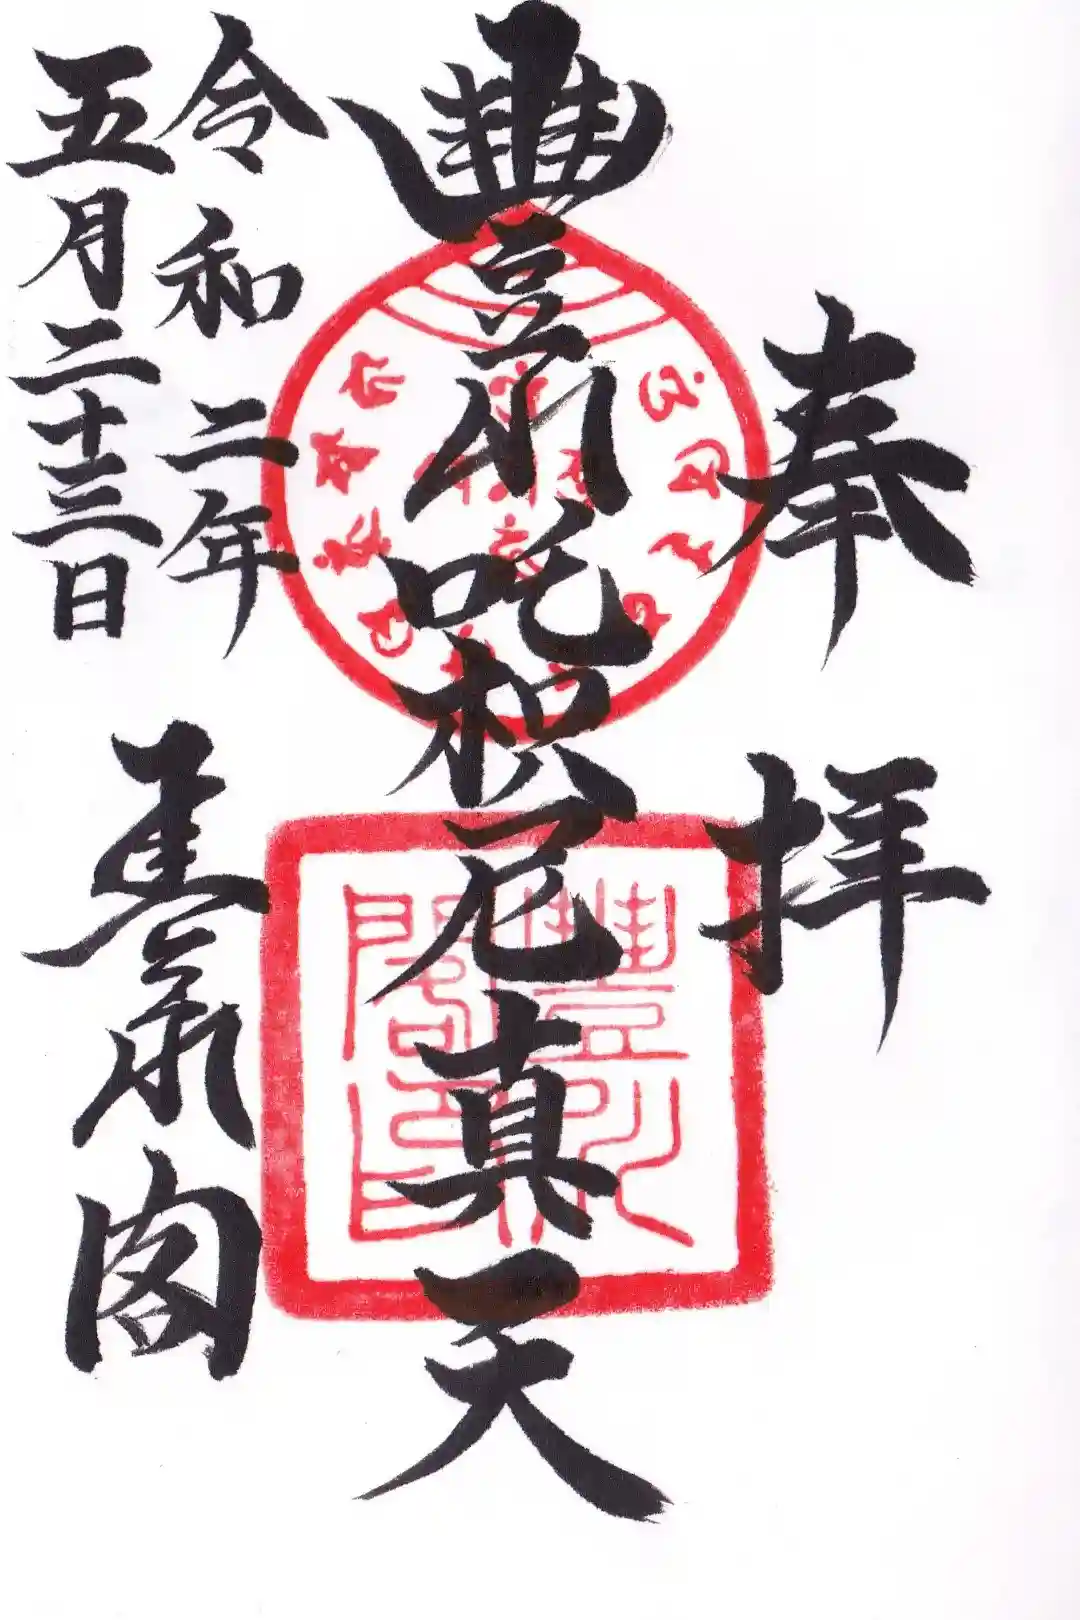 奉拝
豐川吒枳尼真天
令和二年
五月二十三日
豊川閣